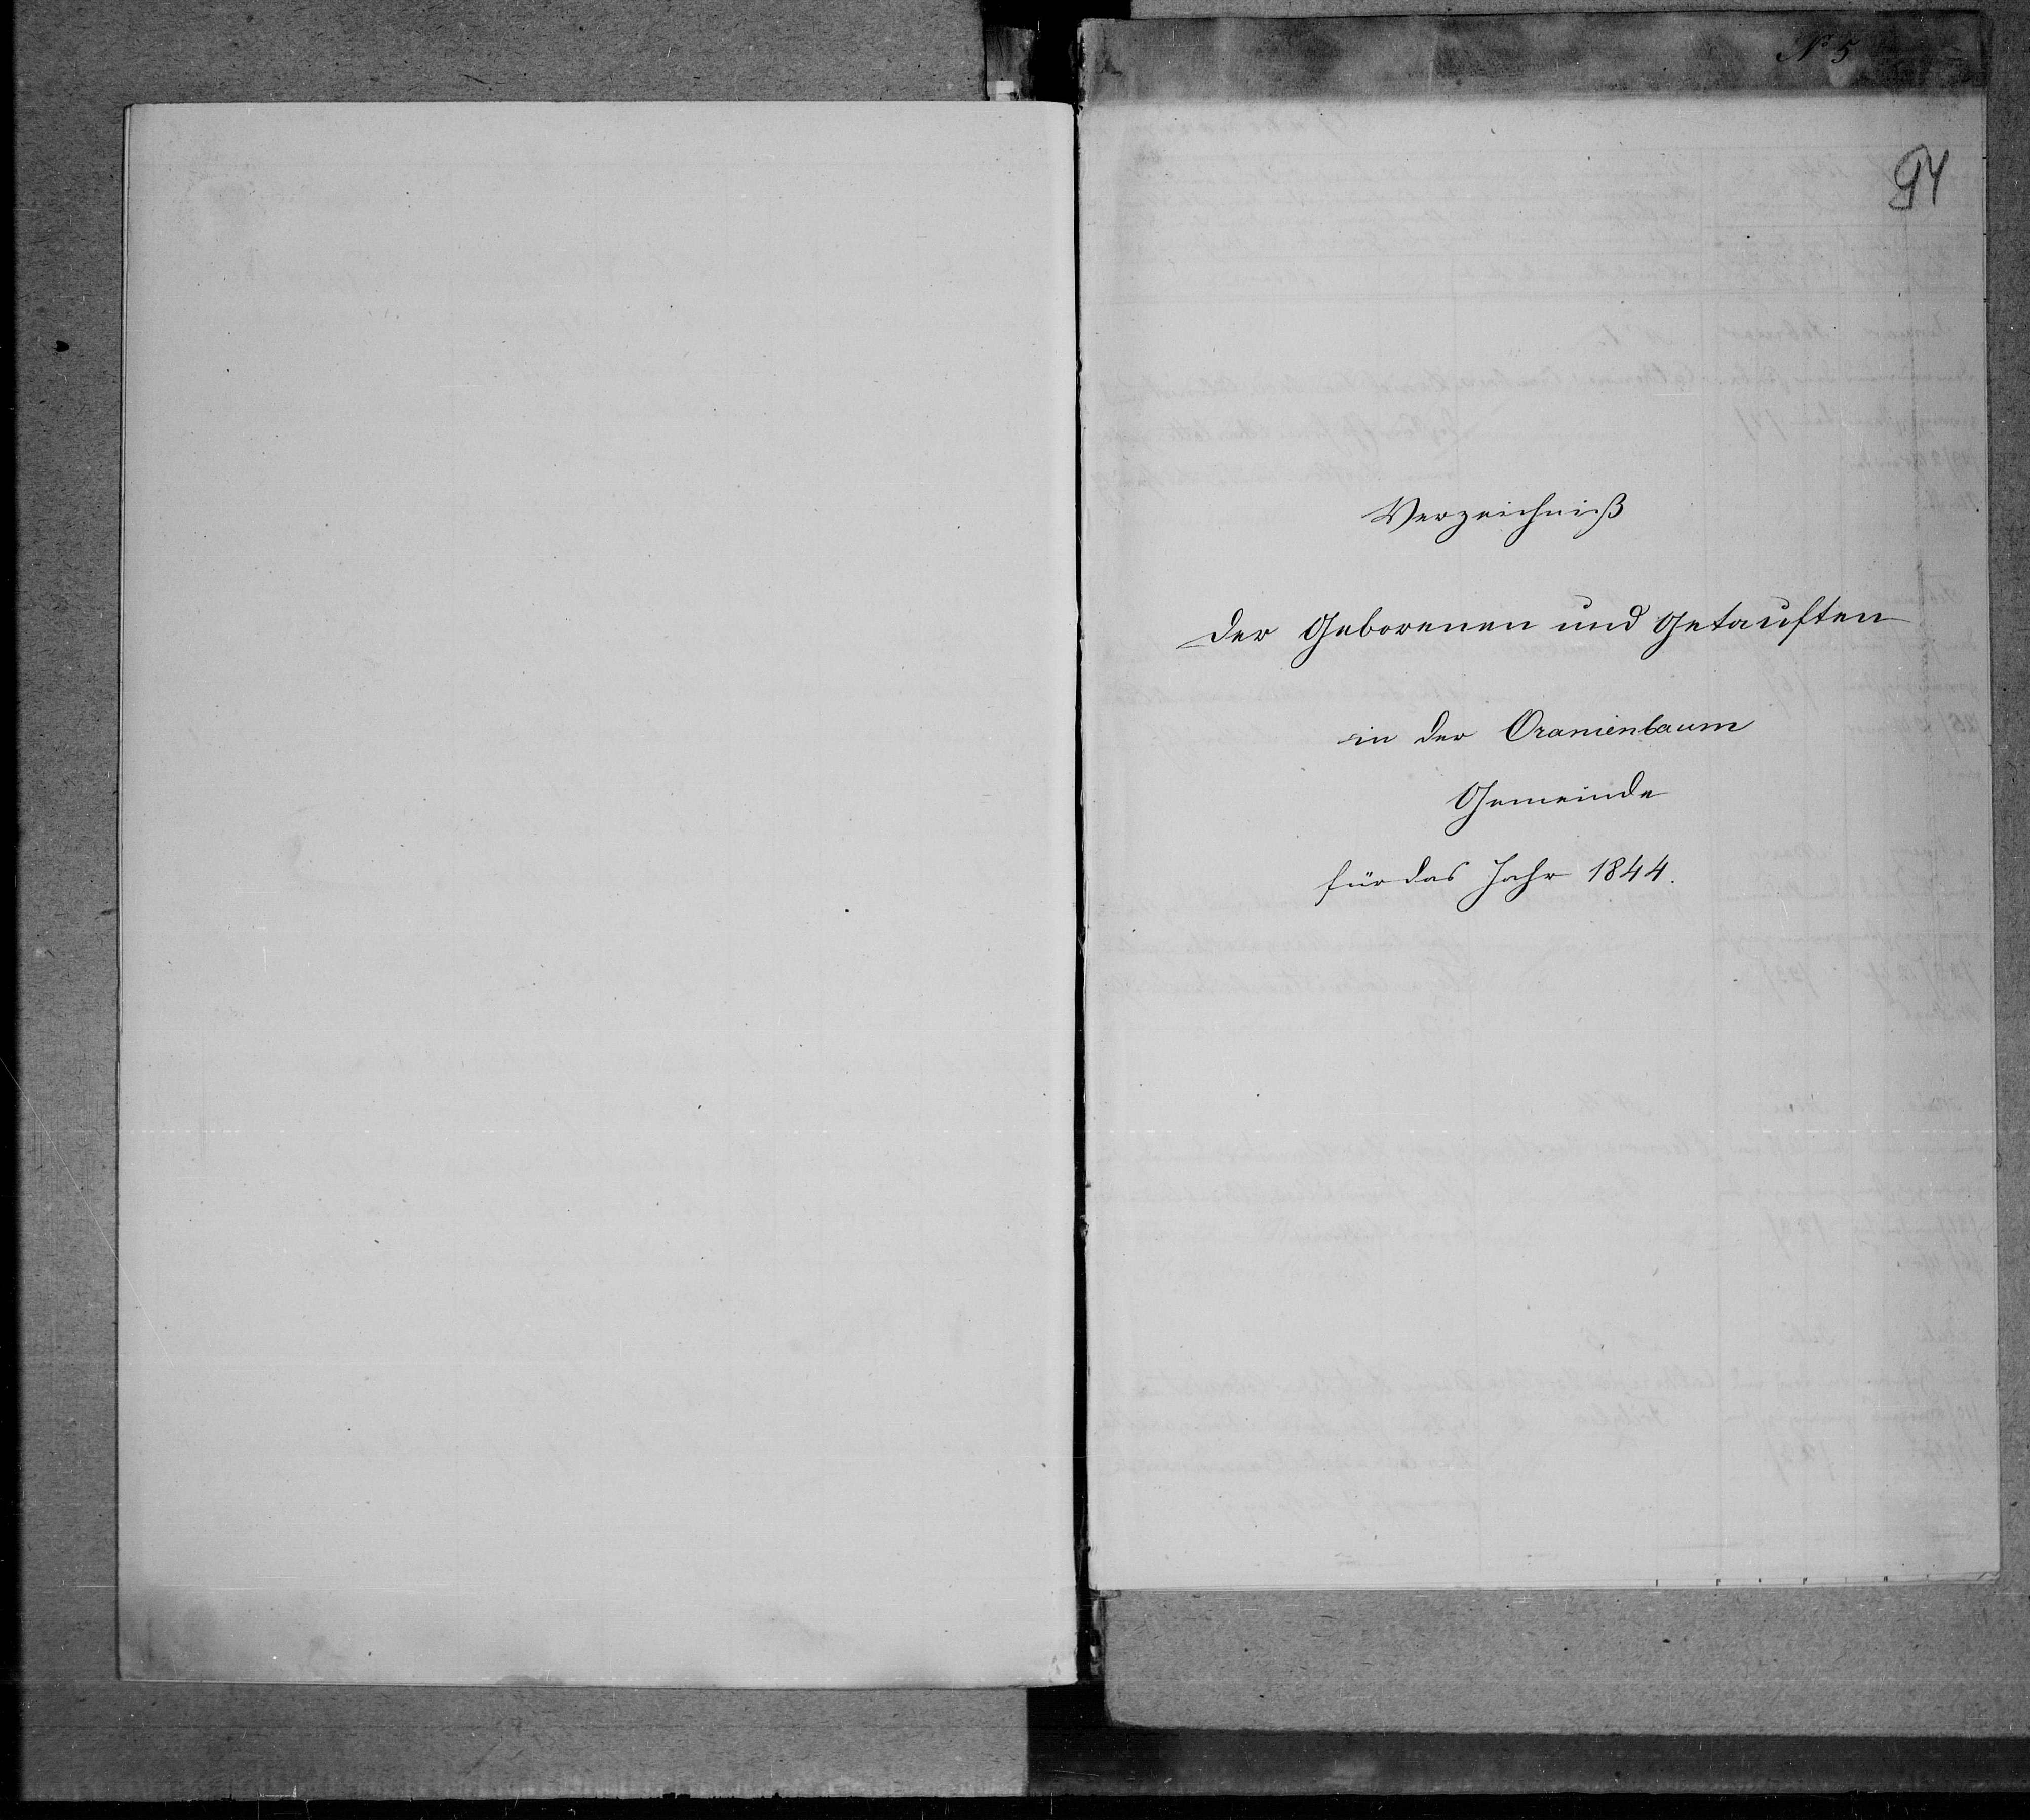 № 5
94
Verzeichniß
der Geborenen und Getauften
in der Oranienbaum
Gemeinde
für das Jahr 1844.